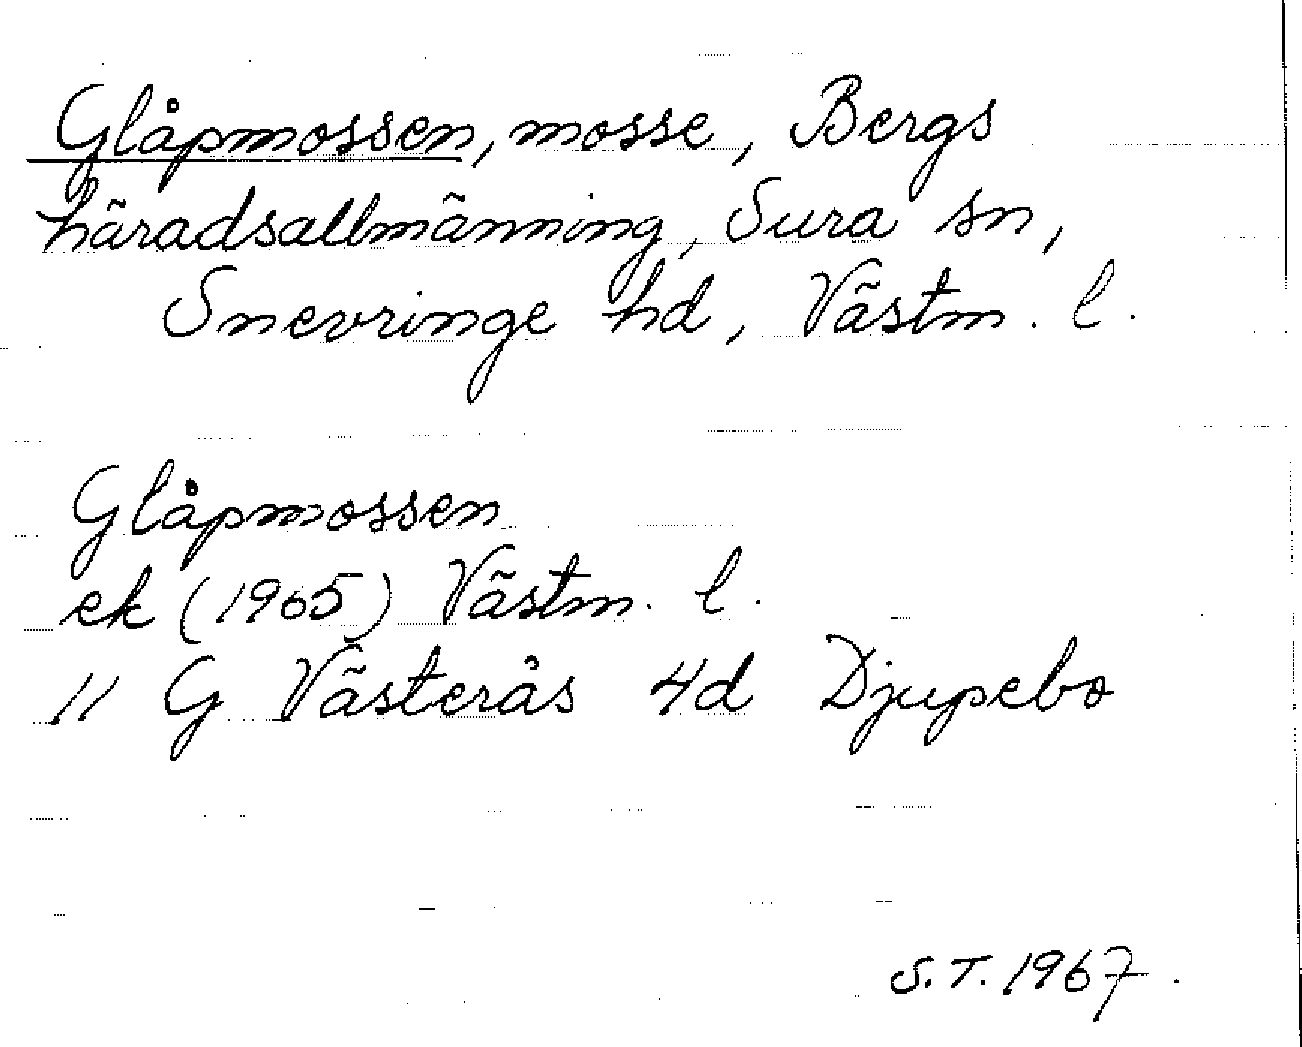 Glåpmossen, mosse, Bergs
häradsallmänning, Sura sn,
Snevringe hd, Västm. l.
Glåpmossen
ek (1965) Västm. l.
11 G Västerås 4d Djupebo
S.T. 1967.